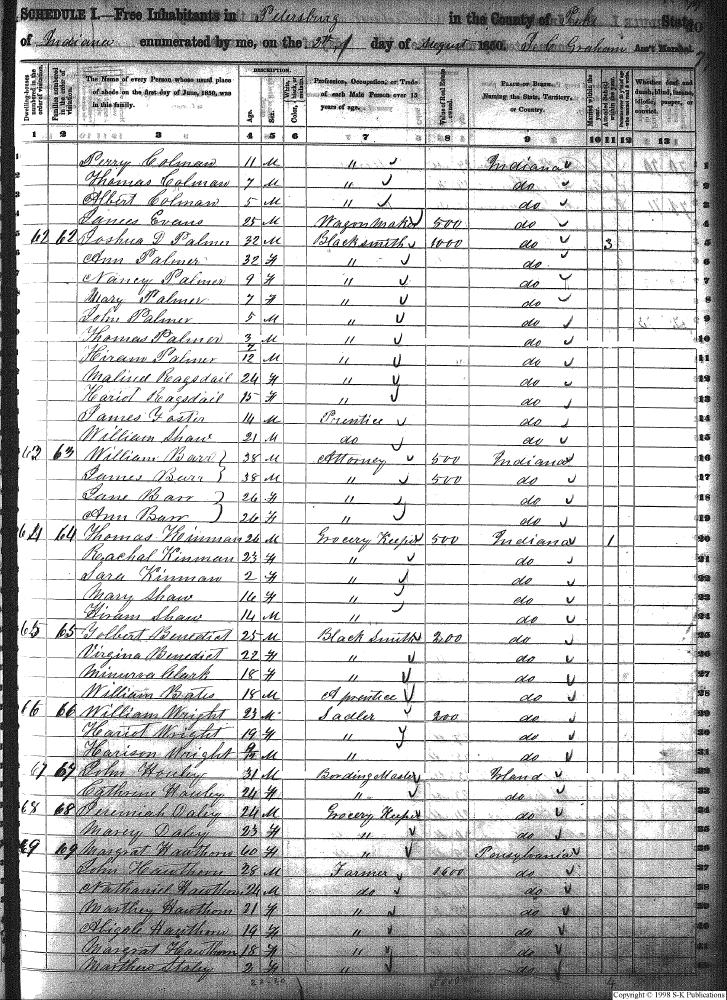 SCHEDULE I.—Free Inhabitants in Petersburg in the County of Pike State
of Indiana enumerated by me, on the 3th day of August 1850. Graham Ass't Marshal.
Dwelling-houses numbered in the order of visitation.
Families numbered in the order of visitation.
The Name of every Person whose usual place of abode on the first day of June, 1850, was in this family.
DESCRIPTION.
Age.
Sex.
White, black, or mulatto.
Color,
Profession, Occupation, or Trade of each Male Person over 15 years of age.
Value of Real Estate owned.
PLACE OF BIRTH. Naming the State, Territory, or Country.
Married within the year.
Attended School within the year.
Whether deaf and dumb, blind, insane, idiotic, pauper, or convict.
1 2 3 4 5 6 7 8 9 10 11 12 13
Perry Colman 11 M " Indiana
Thomas Colman 7 M " do
Albert Colman 5 M " do
James Evans 25 M Wagon Maker 500 do
62 62 Joshua D Palmer 32 M Blacksmith 1000 do 3
Ann Palmer 32 F " do
Nancy Palmer 9 F " do
Mary Palmer 7 F " do
John Palmer 5 M " do
Thomas Palmer 3 M " do
Hiram Palmer 7/12 M " do
Malind Ragsdail 24 F " do
Hariot Ragsdail 15 F " do
James Foster 14 M Prentice do
William Shaw 21 M do do
63 63 William Barr 38 M Attorney 500 Indiana
James Barr 38 M " 500 do
Jane Barr 26 F " do
Ann Barr 26 F " do
64 64 Thomas Kinman 26 M Grocery Keeper 500 Indiana 1
Rachal Kinman 23 F " do
Sara Kinman 2 F " do
Mary Shaw 16 F " do
Hiram Shaw 14 M " do
65 65 Golbert Benedict 25 M Black Smith 200 do
Virgina Benedict 22 F " do
Minurva Clark 18 F " do
William Bates 18 M Aprentice do
66 66 William Wright 23 M Sadler 200 do
Hariot Wright 19 F " do
Harison Wright 9/12 M " do
67 67 John Houley 31 M Bording Master Irland
Cathrine Houley 24 F " do
68 68 Jeremiah Daley 24 M Grocery Keeper do
Marey Daley 23 F " do
69 69 Margrat Hawthorn 60 F " Pensylvania
John Hawthorn 28 M Farmer do
Nathaniel Hawthorn 24 M do do
Marthey Hawthorn 21 F " do
Abigale Hawthorn 19 F " do
Margrat Hawthorn 18 F " do
Marthew Staley 2 F " do
Copyright © 1998 S-K Publications